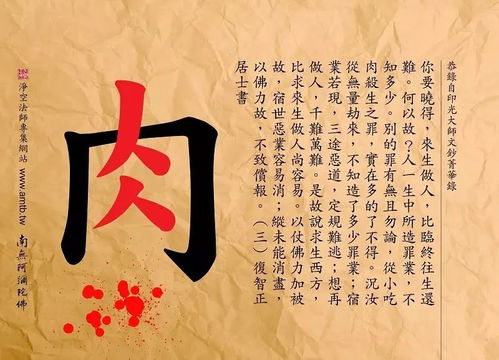 恭錄自印光大師文鈔菁華錄
你要曉得，來生做人，比臨終往生還
難。何以故？人一生中所造罪業，不
知多少。別的罪有無且勿論，從小吃
肉殺生之罪，實在多的了不得。況汝
從無量劫來，不知造了多少罪業；宿
業若現，三途惡道，定規難逃；想再
做人，千難萬難。是故說求生西方，
比求來生做人尚容易。以仗佛力加被
故，宿世惡業容易消；縱未能消盡，
以佛力故，不致償報。（三）復智正
居士書
肉
淨空法師專集網站 www.amtb.tw
南無阿彌陀佛